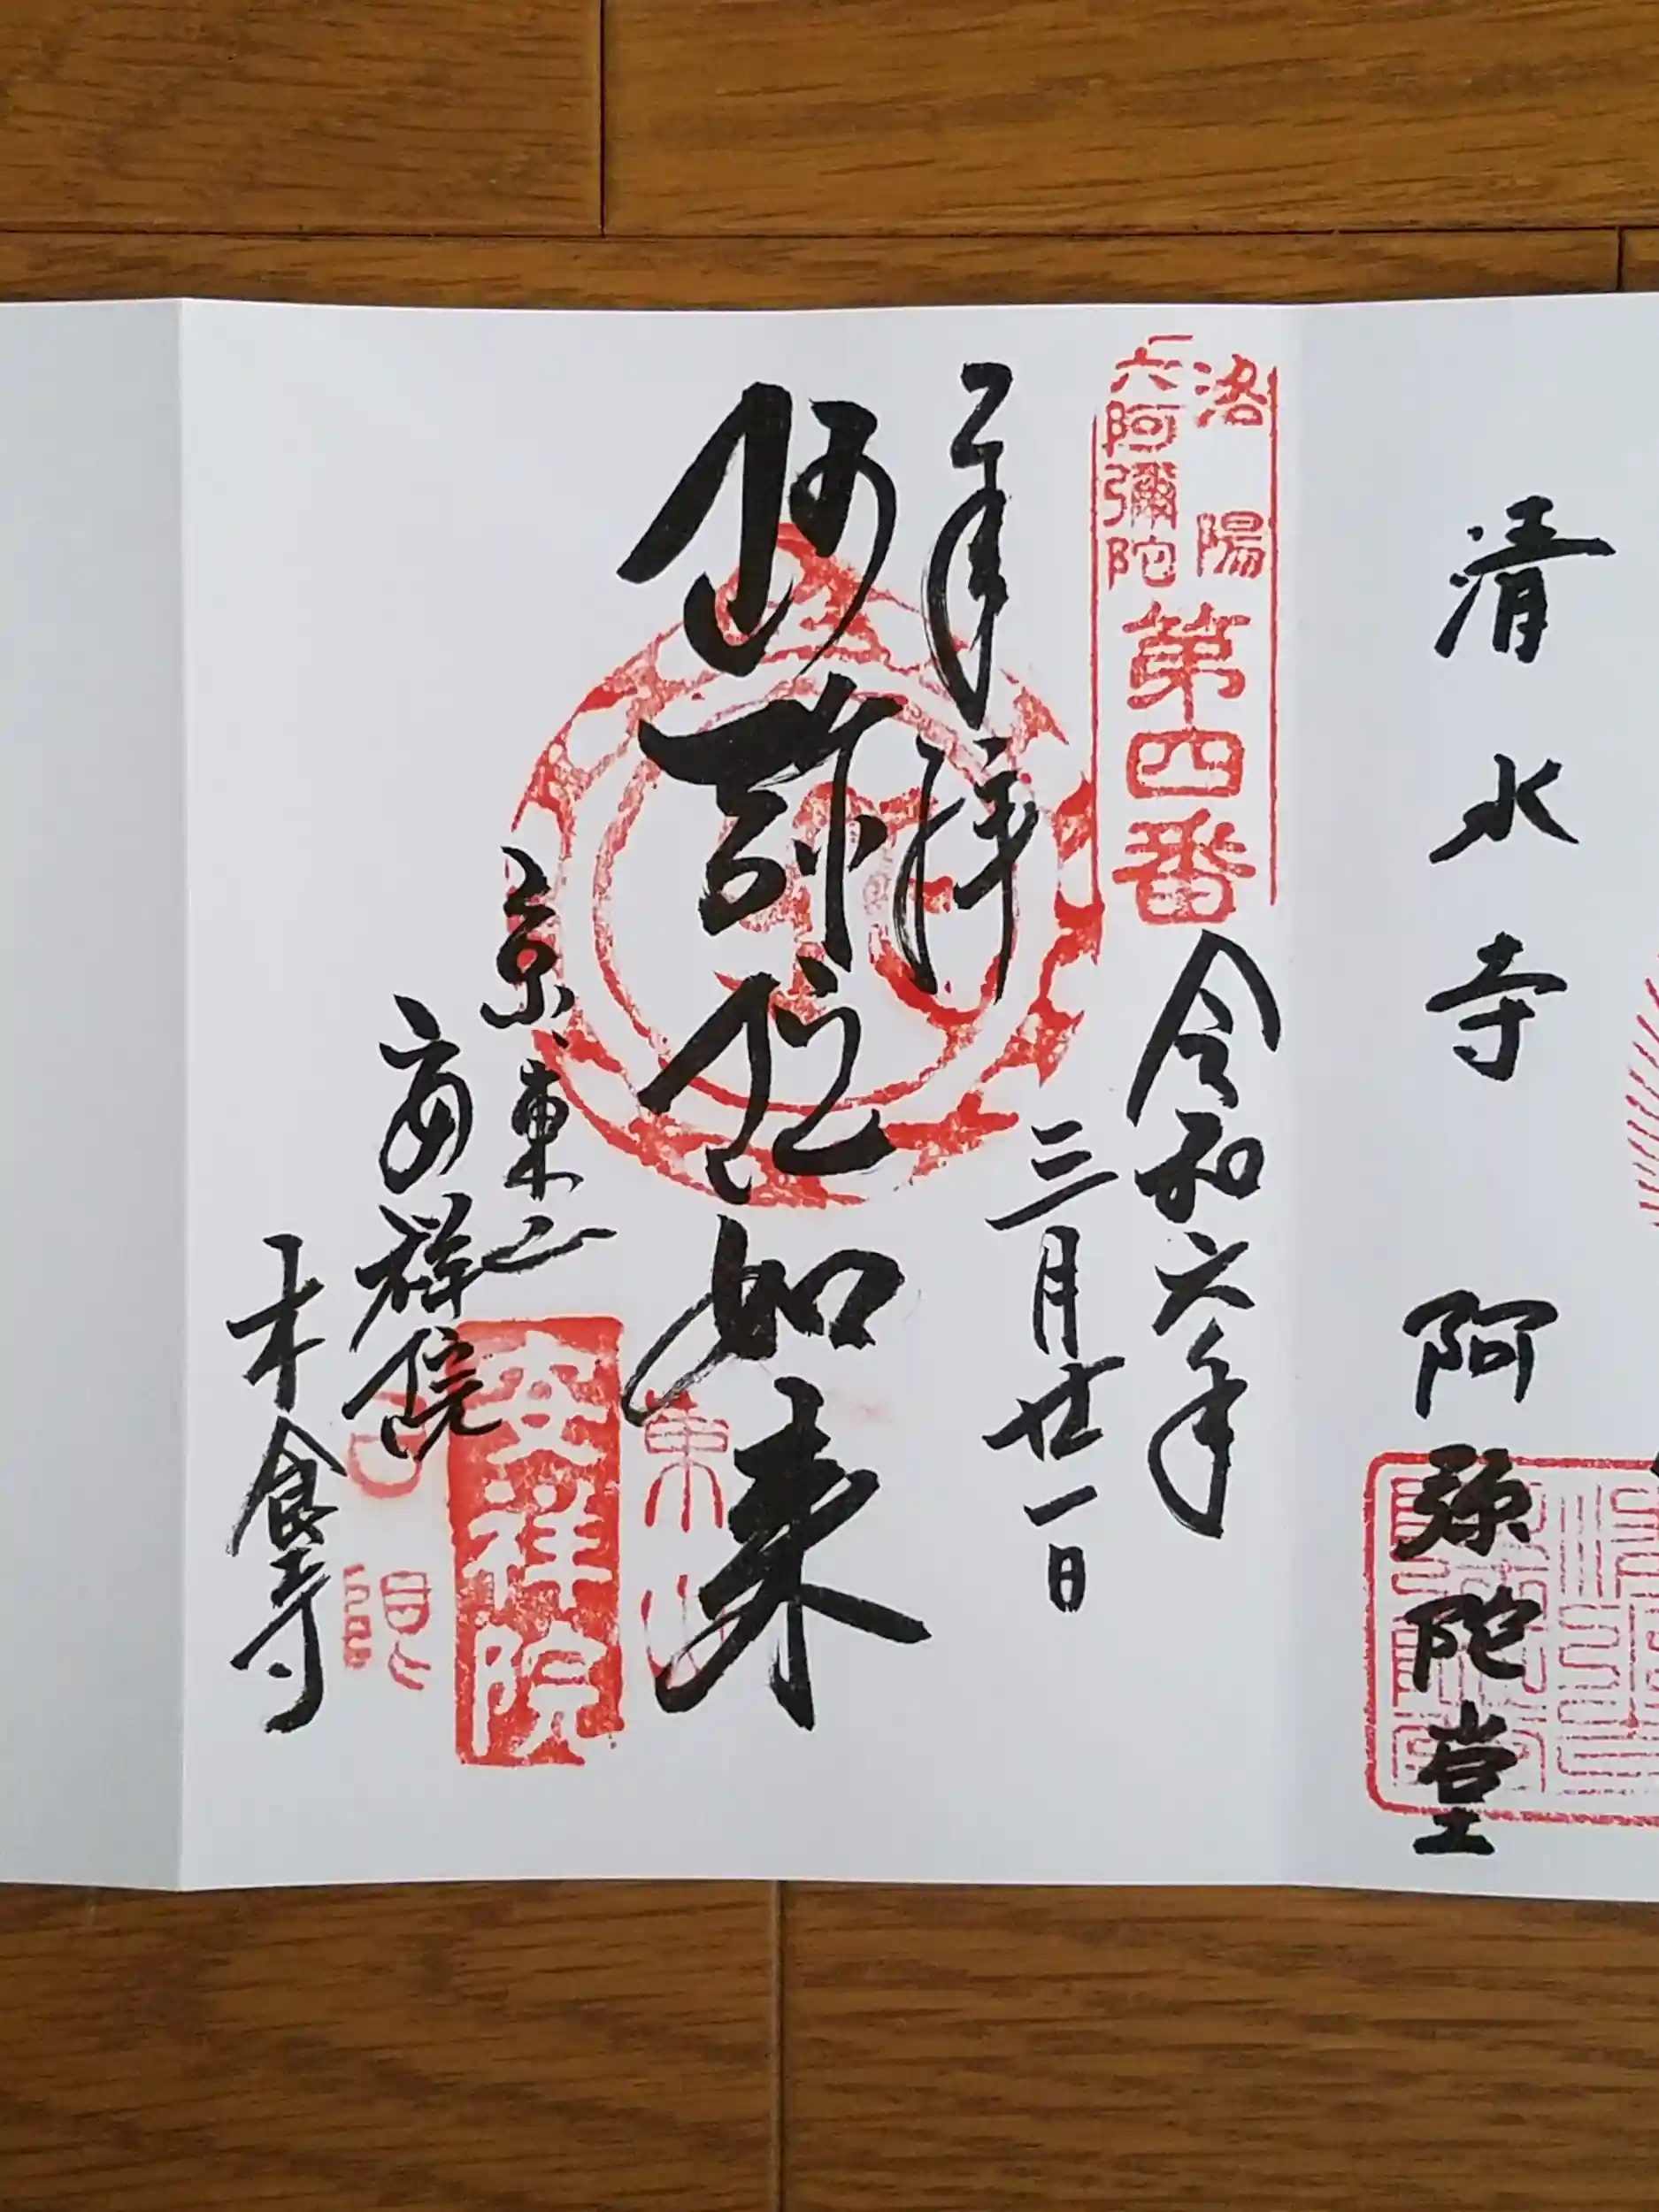 清水寺 阿弥陀堂
洛陽
六阿彌陀
第四番
令和六年
三月廿一日
奉拝
阿弥陀如来
東山
京、東山
安祥院
安祥院
日限
木食寺